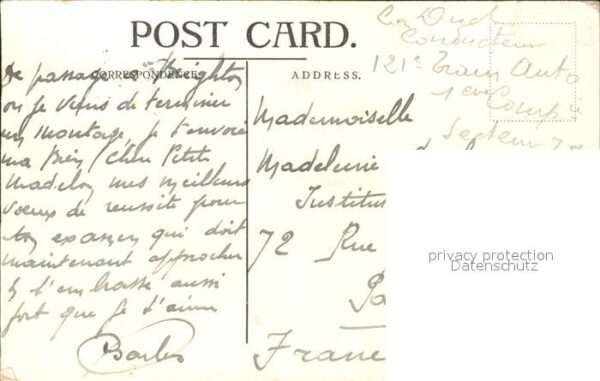 POST CARD.
CORRESPONDENCE
ADDRESS.
De passage à Brighton
où je viens de terminer
un montage, je t'envoie
ma Bien Chère Petite
Madelon mes meilleurs
voeux de réussite pour
ton examen qui doit
maintenant approcher
Je t'embrasse aussi
fort que je t'aime
Conducteur
121e Train Auto
1ere Comp
Mademoiselle
Madeleine
Institut
72 Rue
Pa
France
privacy protection
Datenschutz